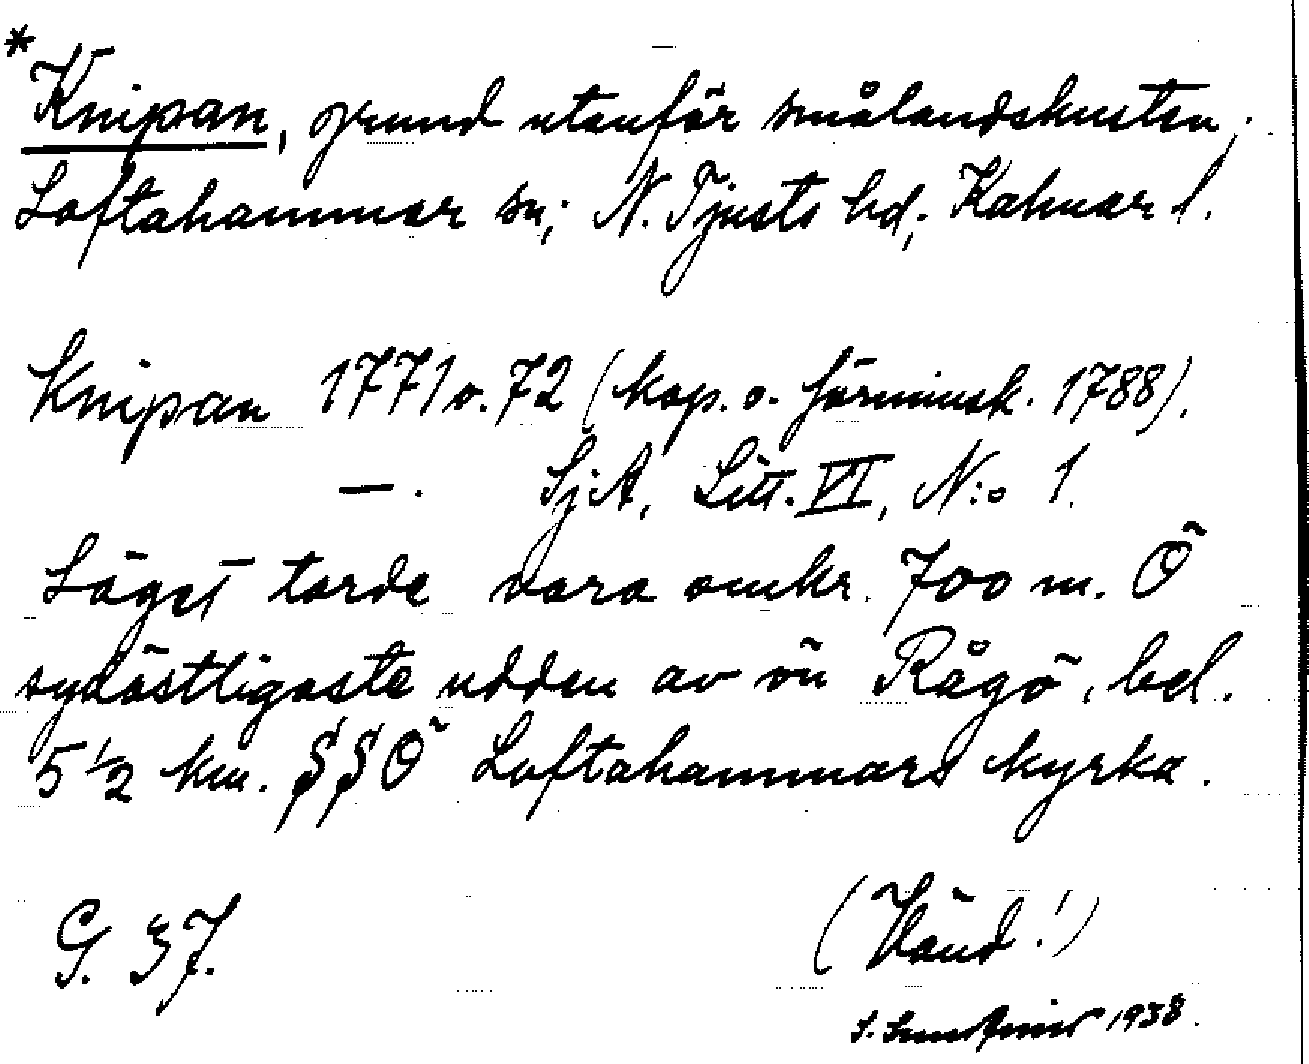 *Knipan, grund utanför smålandskusten;
Loftahammar sn; N. Tjusts hd; Kalmar l.
Knipan 1771 o. 72 (kop. o. förminsk. 1788).
—. SjA, Litt. VI, N:o 1.
Läget torde vara omkr. 700 m. Ö
sydöstligaste udden av ön Rågö, bel.
5 1/2 km. SSÖ Loftahammars kyrka.
G. 37. (Vänd!)
S. 1938.